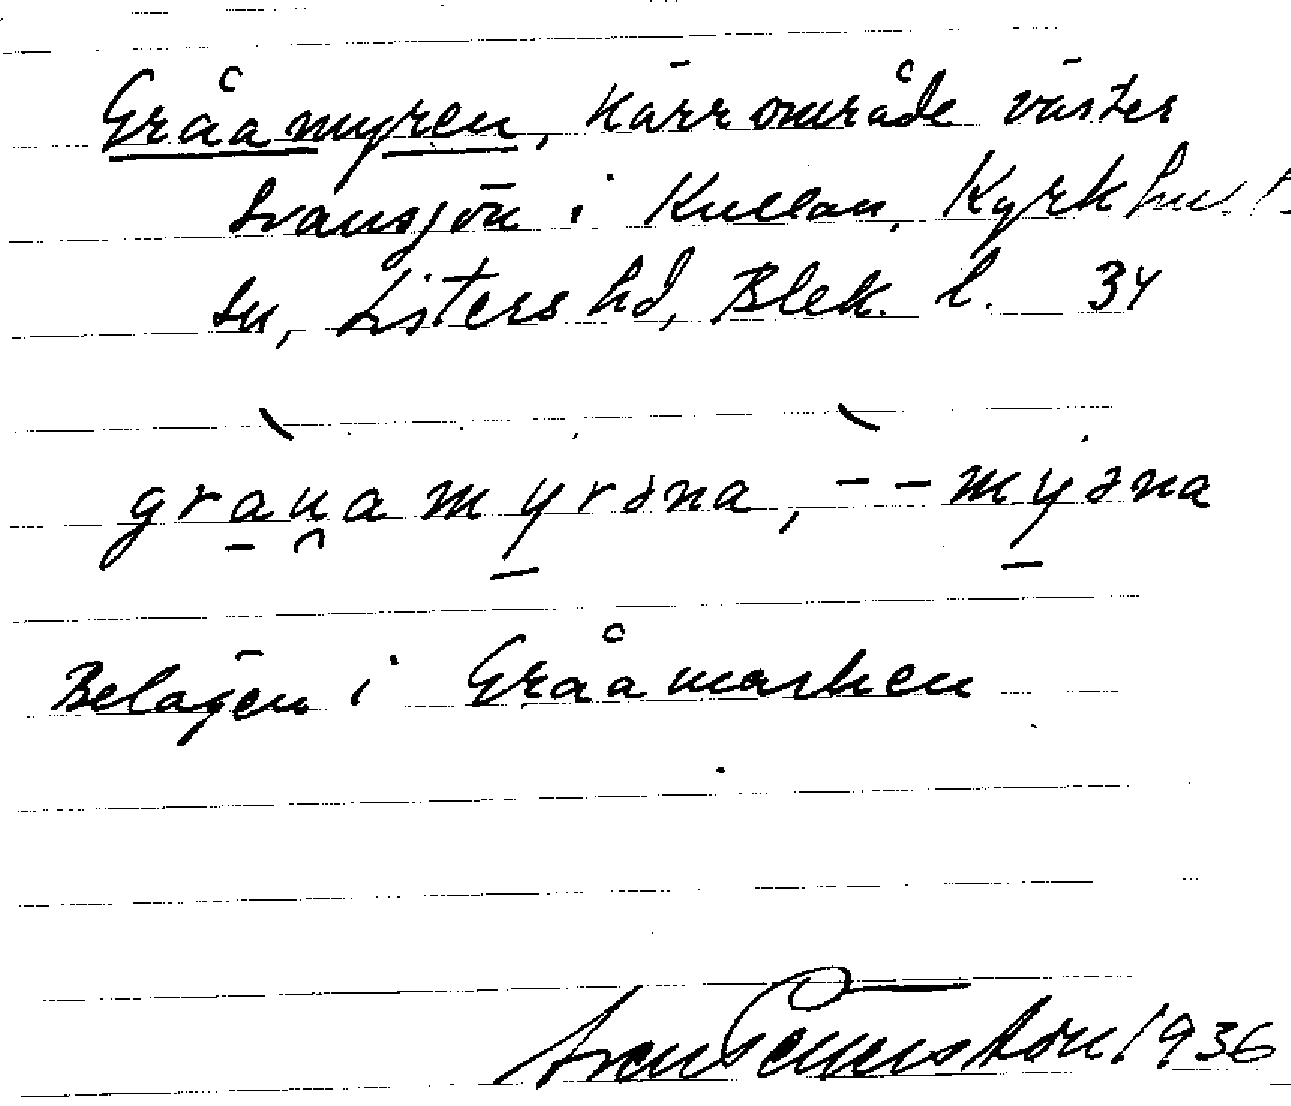 Gråamyren, kärrområde väster
Svansjön i Kullan, Kyrkhults
sn, Listers hd, Blek. l. 34
grau̯amyrəna, -- myəna
Belägen i Gråamarken
Sven 1936